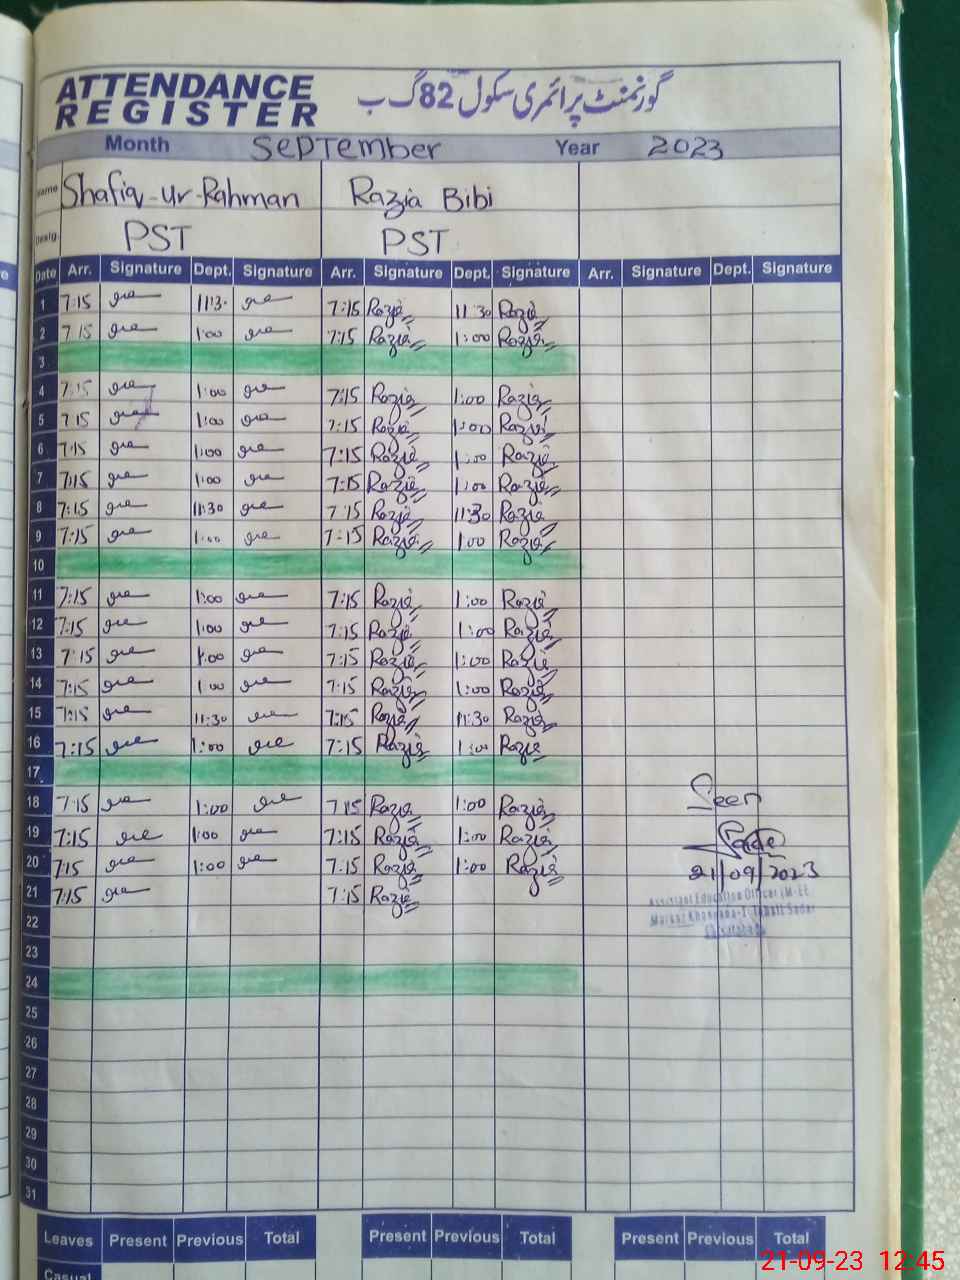 ATTENDANCE REGISTER
گورنمنٹ پرائمری سکول 82 گ ب
Month September Year 2023
Name Shafiq-ur-Rahman Razia Bibi
Desig. PST PST
Date Arr. Signature Dept. Signature Arr. Signature Dept. Signature Arr. Signature Dept. Signature
1 7:15 11:30 7:15 Razia 11:30 Razia
2 7:15 1:00 7:15 Razia 1:00 Razia
3
4 7:15 1:00 7:15 Razia 1:00 Razia
5 7:15 1:00 7:15 Razia 1:00 Razia
6 7:15 1:00 7:15 Razia 1:00 Razia
7 7:15 1:00 7:15 Razia 1:00 Razia
8 7:15 11:30 7:15 Razia 11:30 Razia
9 7:15 1:00 7:15 Razia 1:00 Razia
10
11 7:15 1:00 7:15 Razia 1:00 Razia
12 7:15 1:00 7:15 Razia 1:00 Razia
13 7:15 1:00 7:15 Razia 1:00 Razia
14 7:15 1:00 7:15 Razia 1:00 Razia
15 7:15 11:30 7:15 Razia 11:30 Razia
16 7:15 1:00 7:15 Razia 1:00 Razia
17
18 7:15 1:00 7:15 Razia 1:00 Razia Seen
19 7:15 1:00 7:15 Razia 1:00 Razia
20 7:15 1:00 7:15 Razia 1:00 Razia 21/09/2023
21 7:15 7:15 Razia
Assistant Education Officer (M-EE
Markaz Tehsil Sadar
22
23
24
25
26
27
28
29
30
31
Leaves Present Previous Total Present Previous Total Present Previous Total
Casual
21-09-23 12:45